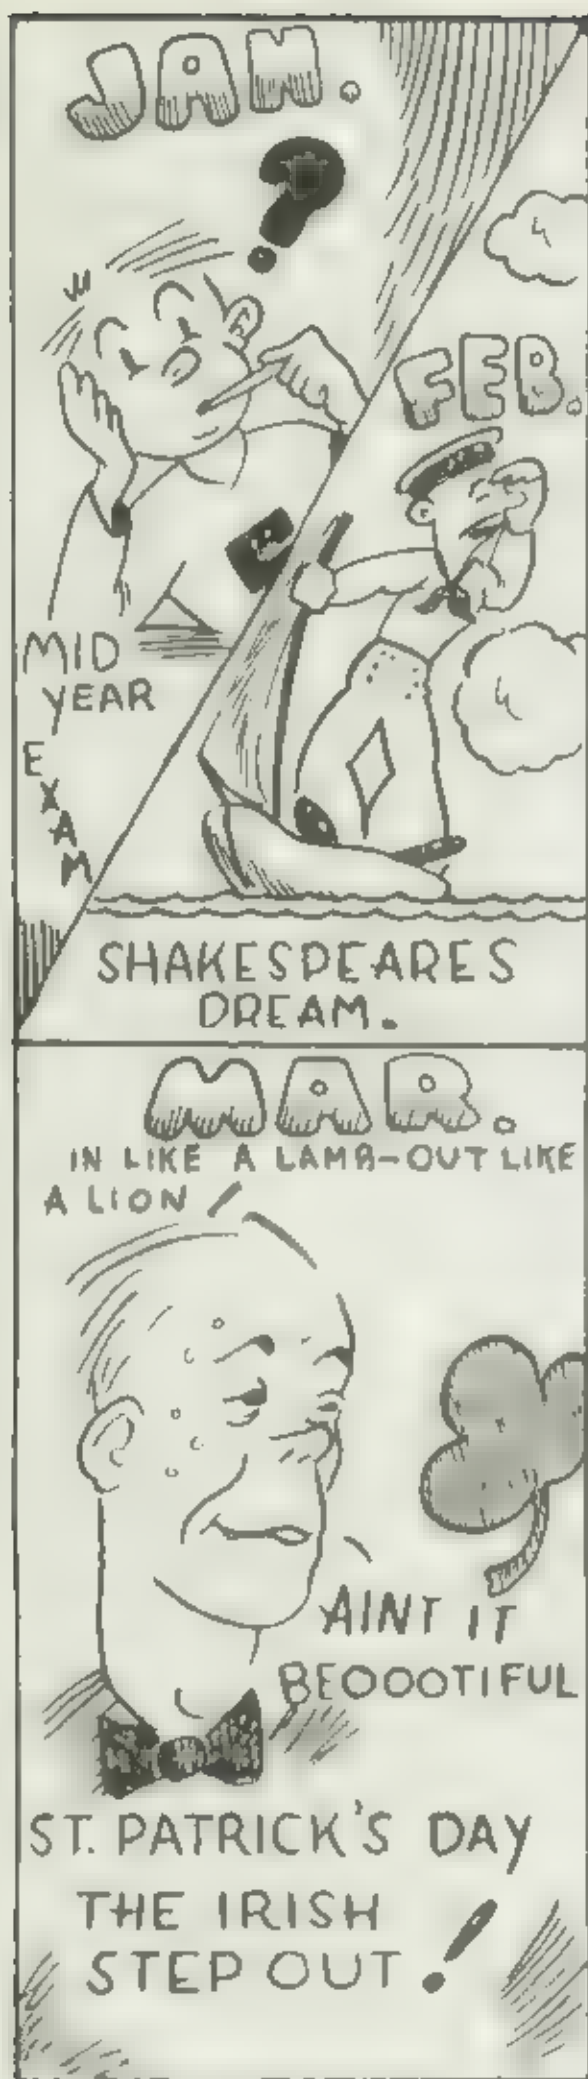 JAN.
?
MID
YEAR
EXAM
FEB.
SHAKESPEARES
DREAM.
MAR.
IN LIKE A LAMB-OUT LIKE
A LION!
AINT IT
BEOOOTIFUL
ST. PATRICK'S DAY
THE IRISH
STEP OUT!